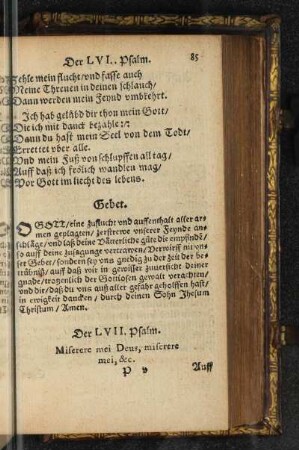 Der LVI. Psalm. 85
Zehle mein flucht/vnd fasse auch
Meine Threnen in deinen schlauch/
Dann werden mein Feynd vmbkehrt.
Ich hab gelübd dir thon mein Gott/
Die ich mit danck bezahle:/:
Dann du hast mein Seel von dem Todt/
Errettet vber alle.
Vnd mein Fuß von schlupffen all tag/
Auff daß ich frölich wandlen mag/
Vor Gott im liecht des lebens.
Gebet.
O GOTT/eine zuflucht vnd auffenthalt aller ar-
men geplagten/zerstrewe vnserer Feynde an-
schläge/vnd laß deine Vätterliche güte die empfinde/
so auff deine zusagunge vertrawen/Verwirff nit vn-
ser Gebet/sondern sey vns gnedig zu der zeit der be-
trübnuß/auff daß wir in gewisser zuuersicht deiner
gnade/trotzenlich der Gottlosen gewalt verachten/
vnd dir/daß du vns auß aller gefahr geholffen hast/
in ewigkeit dancken/durch deinen Sohn Jhesum
Christum/Amen.
Der LVII. Psalm.
Miserere mei Deus, miserere
mei, &c.
P Auff